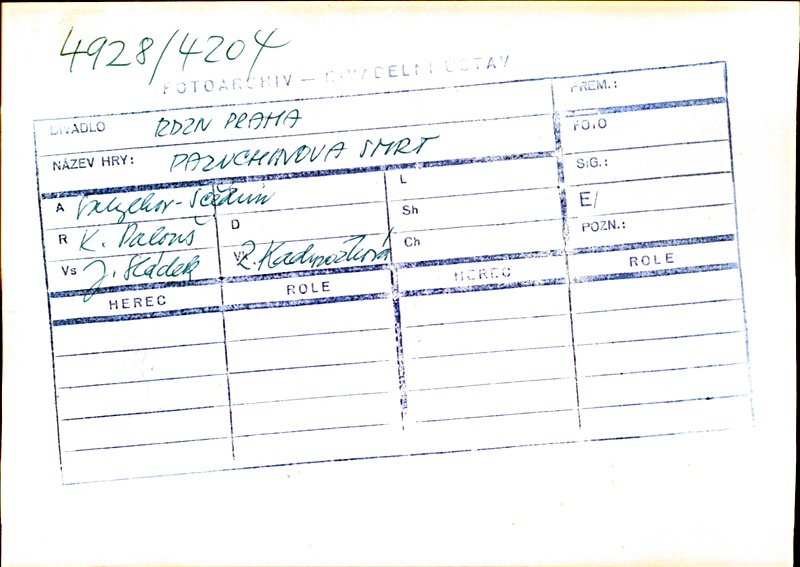 4928/4204
FOTOARCHIV — DIVADELNÍ ÚSTAV
DIVADLO RDZN PRAHA
PREM.:
NÁZEV HRY: PAZUCHINOVA SMRT
FOTO
SIG.:
A Saltykov-Ščedrin
L
E/
R K. Palouš
D
Sh
POZN.:
Vs J. Sládek
Vk Z. Kadrnožková
Ch
HEREC ROLE HEREC ROLE